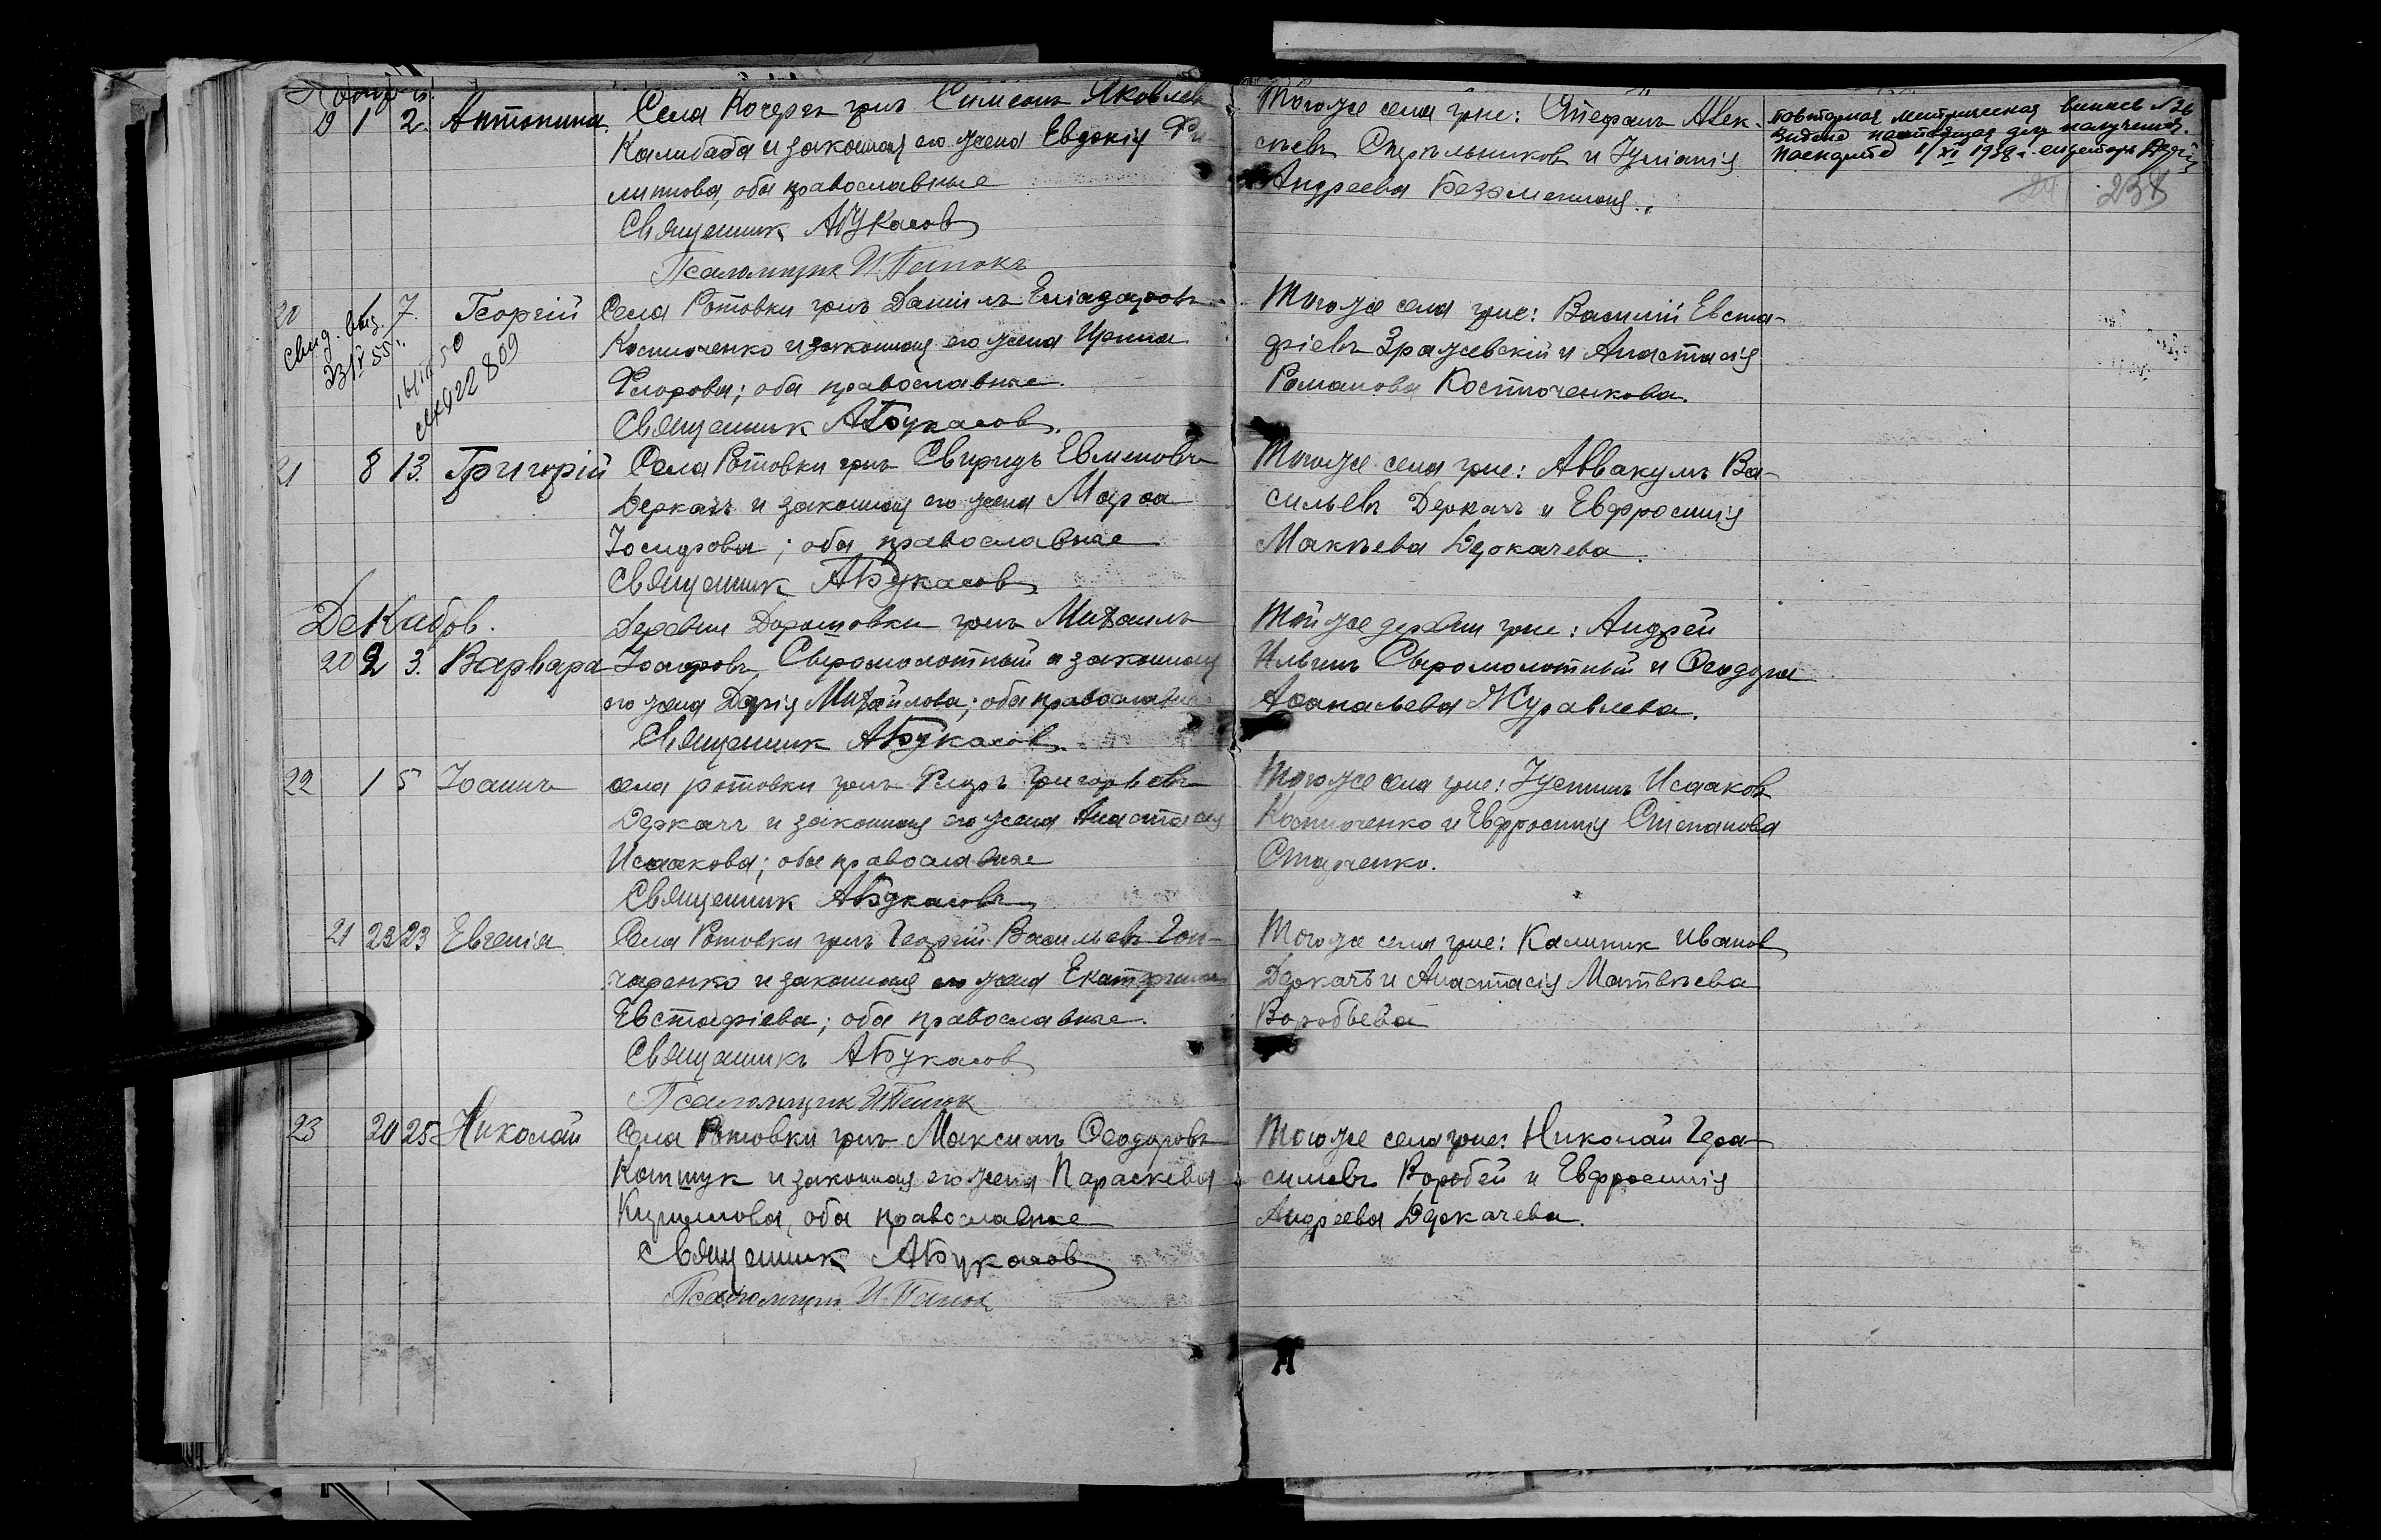 19 1 2. Антонина. Села Кочерег гр-нъ Симеонъ Яковлевъ
Калибаба и законная его жена Евдокія Фи-
липпова, оба православные
Священник АБукасов
Псаломщик И. Папокъ
Того же села гр-не: Стефанъ Алек-
сѣевъ и Іуліанія
Андреева Безаменная.
повторная метрическая выпись №26
для получения
паспорта 1/XI 1938 г. секретарь
24 238
20 7. Георгій Села Ротовки гр-нъ Даніилъ Еліазаровъ
Свид. выд.
23/V 55 г.
922809
Костюченко и законная его жена Ирина
Флорова; оба православные.
Священник АБукасов.
Того же села гр-не: Василій Евста-
фіевъ Зражевскій и Анастасія
Романова Костюченкова.
21 8 13. Григорій Села Ротовки гр-нъ Свиридъ Евменовъ
Деркачъ и законная его жена Марѳа
Іосифова; оба православные
Священник АБукасов
Того же села гр-не: Аввакумъ Ва-
сильевъ Деркачъ и Евфросинія
Макѣева Деркачева.
Декабрь.
Деревни Дорошовки гр-нъ Михаилъ
20 2 3. Варвара Іосифовъ Сыромолотный и законная
его жена Дарія Михайлова; оба православные
Священник АБукасов.
Той же деревни гр-не: Андрей
Ильинъ Сыромолотный и Ѳеодора
Аѳанасьева Журавлева.
22 1 5 Іоаннъ села Ротовки гр-нъ Флоръ Григорьевъ
Деркачъ и законная его жена Анастасія
Исаакова; оба православные
Священник АБукасовъ
Того же села гр-не: Іустинъ Исааков
Костюченко и Евфросинія Степанова
Старченко.
21 23 23 Евгенія Села Ротовки гр-нъ Георгій Васильевъ Гон-
чаренко и законная его жена Екатерина
Евстафіева; оба православные.
Священникъ АБукасов
Псаломщик ИПапок
Того же села гр-не: Калиник Иванов
Деркачъ и Анастасія Матвѣева
Воробьева
23 20 25 Николай Села Ротовки гр-нъ Максимъ Ѳеодоровъ
Котшук и законная его жена Параскева
Кириллова, оба православные
Священник АБукасов
Псаломщик И. Папок
Того же села гр-не: Николай Гера-
симовъ Воробей и Евфросинія
Андреева Деркачева.